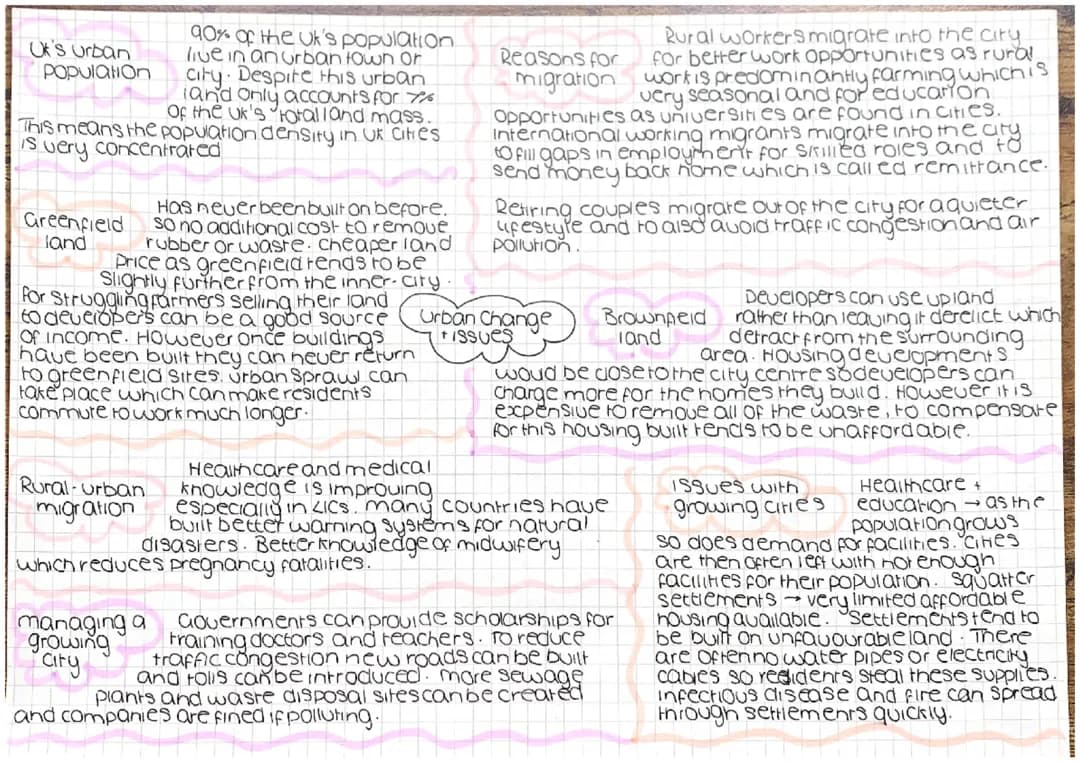 UK's urban
population
90% of the UK's population
live in an urban town or
city. Despite this urban
land only accounts for 7%
of the UK's total land mass.
This means the population density in UK cities
is very concentrated
Reasons for
migration
Rural workers migrate into the city
for better work opportunities as rural
work is predominantly farming which is
very seasonal and for education
opportunities as universities are found in cities.
International working migrants migrate into the city
to fill gaps in employment for skilled roles and to
send money back home which is called remittance.
Retiring couples migrate out of the city for a quieter
lifestyle and to also avoid traffic congestion and air
pollution.
Greenfield
land
Has never been built on before.
so no additional cost to remove
rubber or waste. cheaper land
price as greenfield tends to be
slightly further from the inner-city.
For struggling farmers selling their land
to developers can be a good source
of income. However once buildings
have been built they can never return
to greenfield sites. urban sprawl can
take place which can make residents
commute to work much longer.
Urban Change
+ issues
Brownfield
land
Developers can use up land
rather than leaving it derelict which
detract from the surrounding
area. Housing developments
woud be close to the city centre so developers can
charge more for the homes they build. However it is
expensive to remove all of the waste, to compensate
for this housing built tends to be unaffordable.
Rural-urban
migration
Healthcare and medical
knowledge is improving
especially in LICs. many countries have
built better warning systems for natural
disasters. Better knowledge of midwifery
which reduces pregnancy fatalities.
issues with
growing cities
Healthcare +
education → as the
population grows
so does demand for facilities. Cities
are then often left with not enough
facilities for their population. Squatter
settlements → very limited affordable
housing available. Settlements tend to
be built on unfavourable land. There
are often no water pipes or electricity
cables so residents steal these supplies.
infectious disease and fire can spread
through settlements quickly.
managing a
growing
city
Governments can provide scholarships for
training doctors and teachers. To reduce
traffic congestion new roads can be built
and tolls can be introduced. more sewage
plants and waste disposal sites can be created
and companies are fined if polluting.